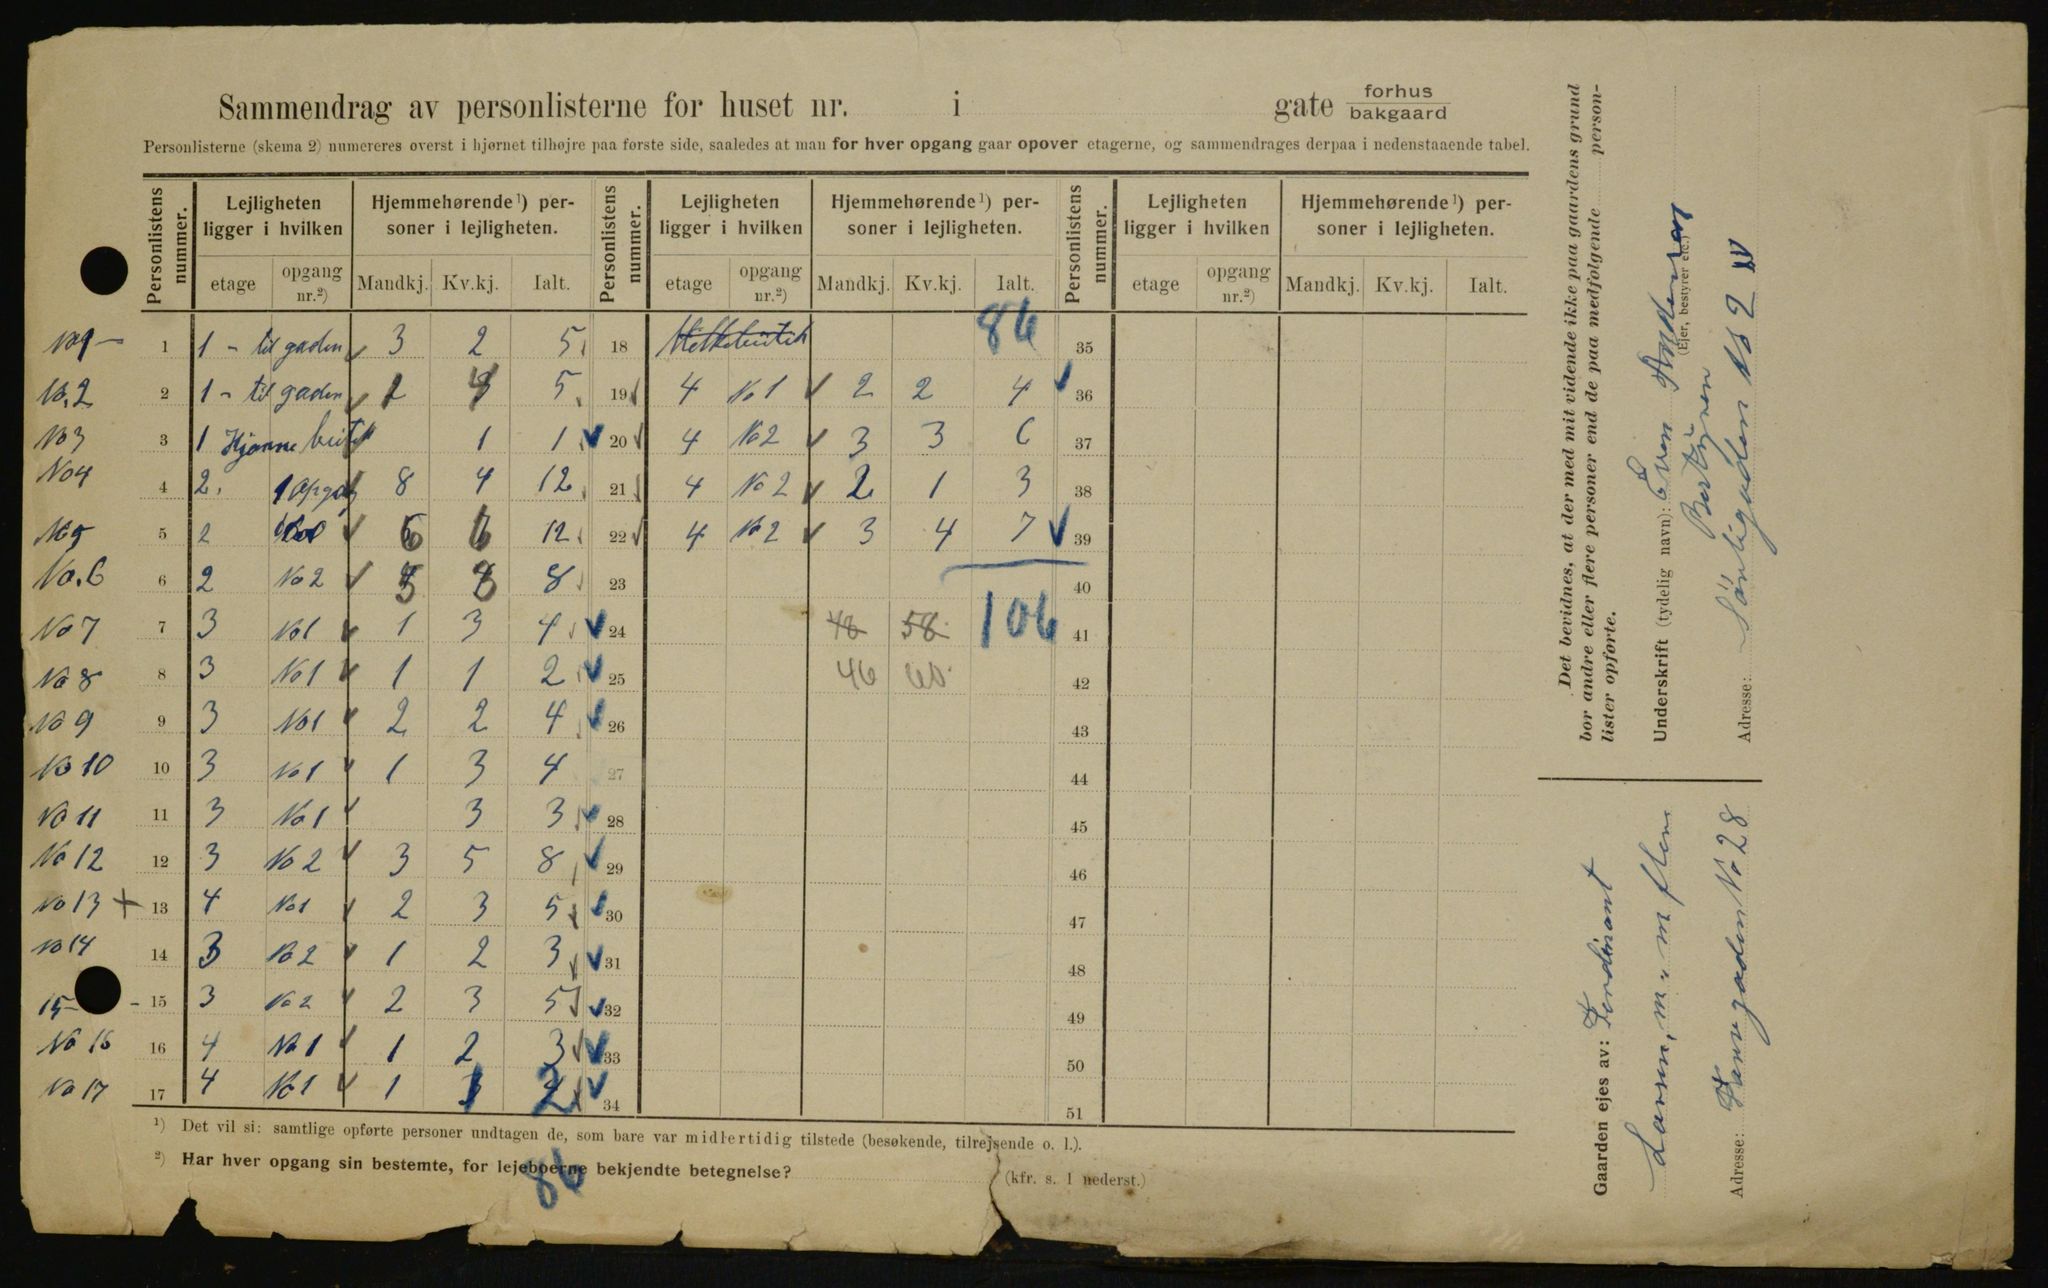 Sammendrag av personlisterne for huset nr. i gate forhus bakgaard
Personlisterne (skema 2) numereres øverst i hjørnet tilhøjre paa første side, saaledes at man for hver opgang gaar opover etagerne, og sammendrages derpaa i nedenstaaende tabel.
Personlistens nummer. Lejligheten ligger i hvilken Hjemmehørende ¹) personer i lejligheten. Personlistens nummer. Lejligheten ligger i hvilken Hjemmehørende ¹) personer i lejligheten. Personlistens nummer. Lejligheten ligger i hvilken Hjemmehørende ¹) personer i lejligheten.
etage opgang nr.²) Mandkj. Kv.kj. Ialt. etage opgang nr.²) Mandkj. Kv.kj. Ialt. etage opgang nr.²) Mandkj. Kv.kj. Ialt.
86
No 1 – 1 1 – til gaden 3 2 5 18 35
No. 2 2 1 – til gaden 5 19 4 No 1 2 2 4 36
No 3 3 1 1 1 20 4 No 2 3 3 6 37
No 4 4 2. 1 8 4 12 21 4 No 2 2 1 3 38
No 5 5 2 6 6 12 22 4 No 2 3 4 7 39
No. 6 6 2 No 2 8 23 40
No 7 7 3 No 1 1 3 4 24 48 58 106 41
No 8 8 3 No 1 1 1 2 25 46 60 42
No 9 9 3 No 1 2 2 4 26 43
No 10 10 3 No 1 1 3 4 27 44
No 11 11 3 No 1 3 3 28 45
No 12 12 3 No 2 3 5 8 29 46
No 13 + 13 4 No 1 2 3 5 30 47
No 14 14 3 No 2 1 2 3 31 48
15 – 15 3 No 2 2 3 5 32 49
No 16 16 4 No 1 1 2 3 33 50
No 17 17 4 No 1 1 1 2 34 51
¹) Det vil si: samtlige opførte personer undtagen de, som bare var midlertidig tilstede (besøkende, tilrejsende o. l.).
²) Har hver opgang sin bestemte, for lejeboerne bekjendte betegnelse? (kfr. s. 1 nederst.)
86
Det bevidnes, at der med mit vidende ikke paa gaardens grund
bor andre eller flere personer end de paa medfølgende person-
lister opførte.
Underskrift (tydelig navn): Even Andersen
(Ejer, bestyrer etc.)
Adresse:
Gaarden ejes av: Ferdinant
Larsen, m. m. flere
Adresse: No 28